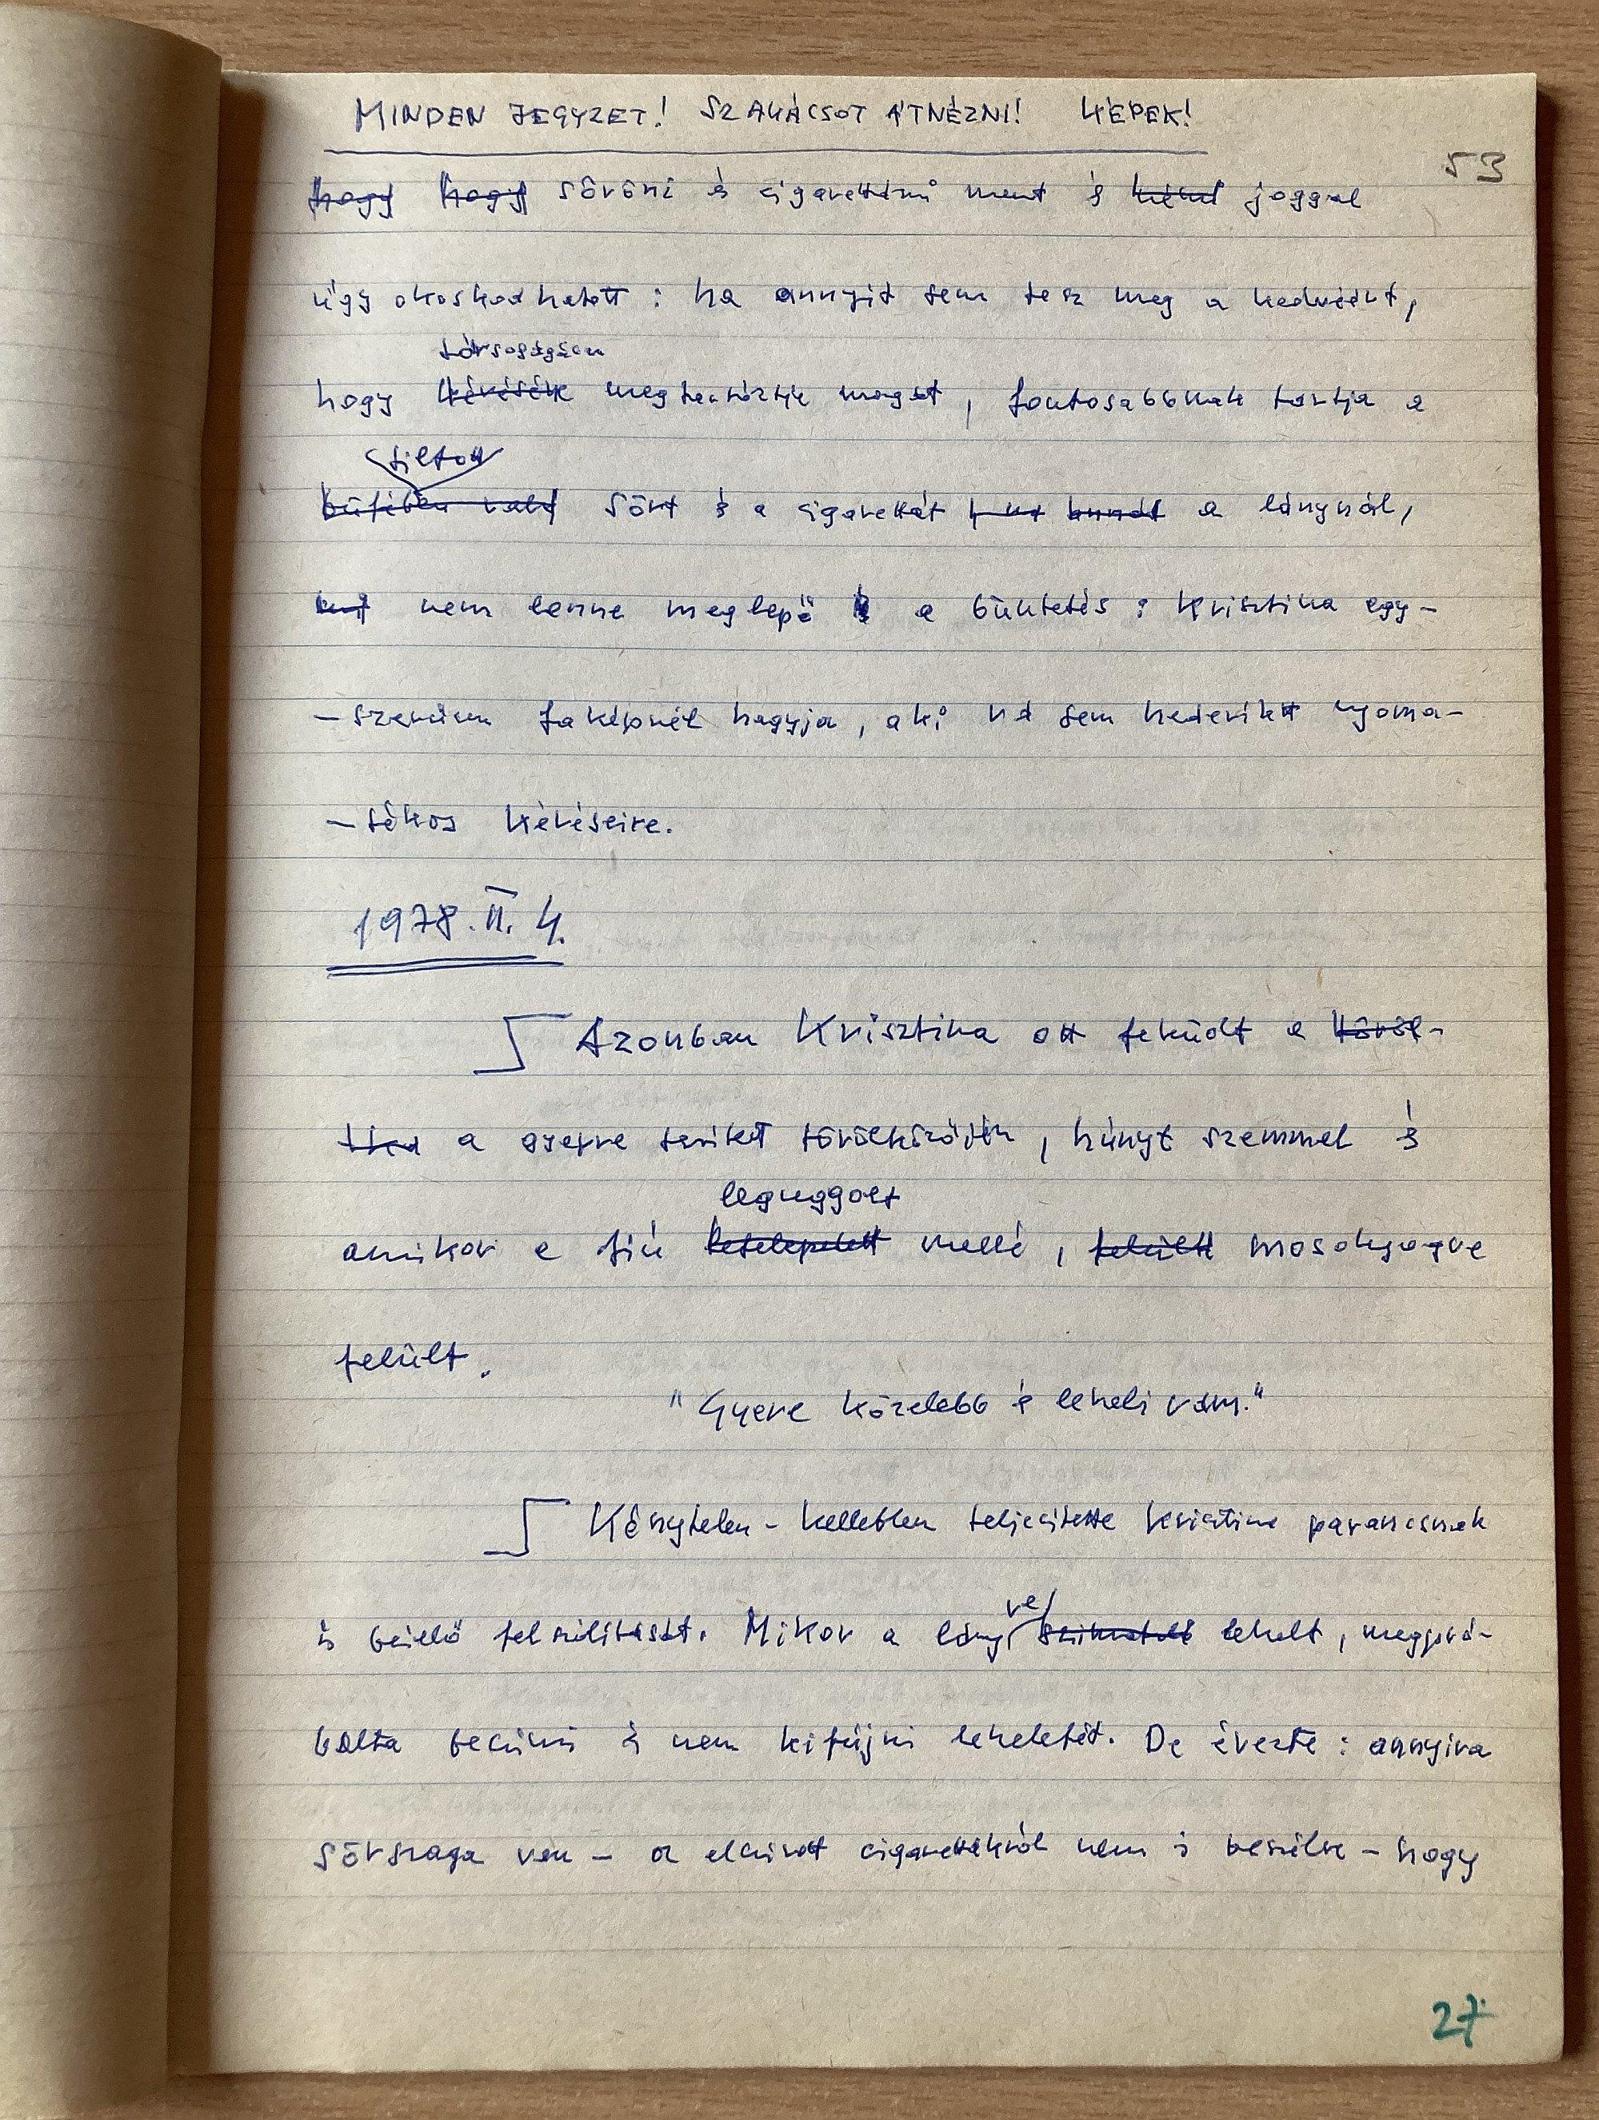 MINDEN JEGYZET! SZAKÁCSOT ÁTNÉZNI! KÉPEK!
53
hogy hogy sörözni és cigarettázni ment és joggal
úgy okoskodhatott: ha annyit sem tesz meg a kedvéért,
társaságában
hogy kérésére megtartóztatja magát, fontosabbnak tartja a
tiltott
büfében való sört és a cigarettát a lánynál,
nem lenne meglepő a büntetés: Krisztina egy-
-szerűen faképnél hagyja, aki rá sem hederített nyoma-
-tékos kéréseire.
1978. II. 4.
Azonban Krisztina ott feküdt a
a gyepre terített törölközőjén, húnyt szemmel és
leguggolt
amikor a fiú letelepedett mellé, felült mosolyogva
felült.
"Gyere közelebb és lehelj rám."
Kénytelen-kelletlen teljesítette Krisztina parancsnak
is beillő felszólítását. Mikor a lány
re
lehelt, megpró-
bálta beszívni és nem kifújni leheletét. De érezte: annyira
sörszaga van - az elszívott cigarettákról nem is beszélve - hogy
27